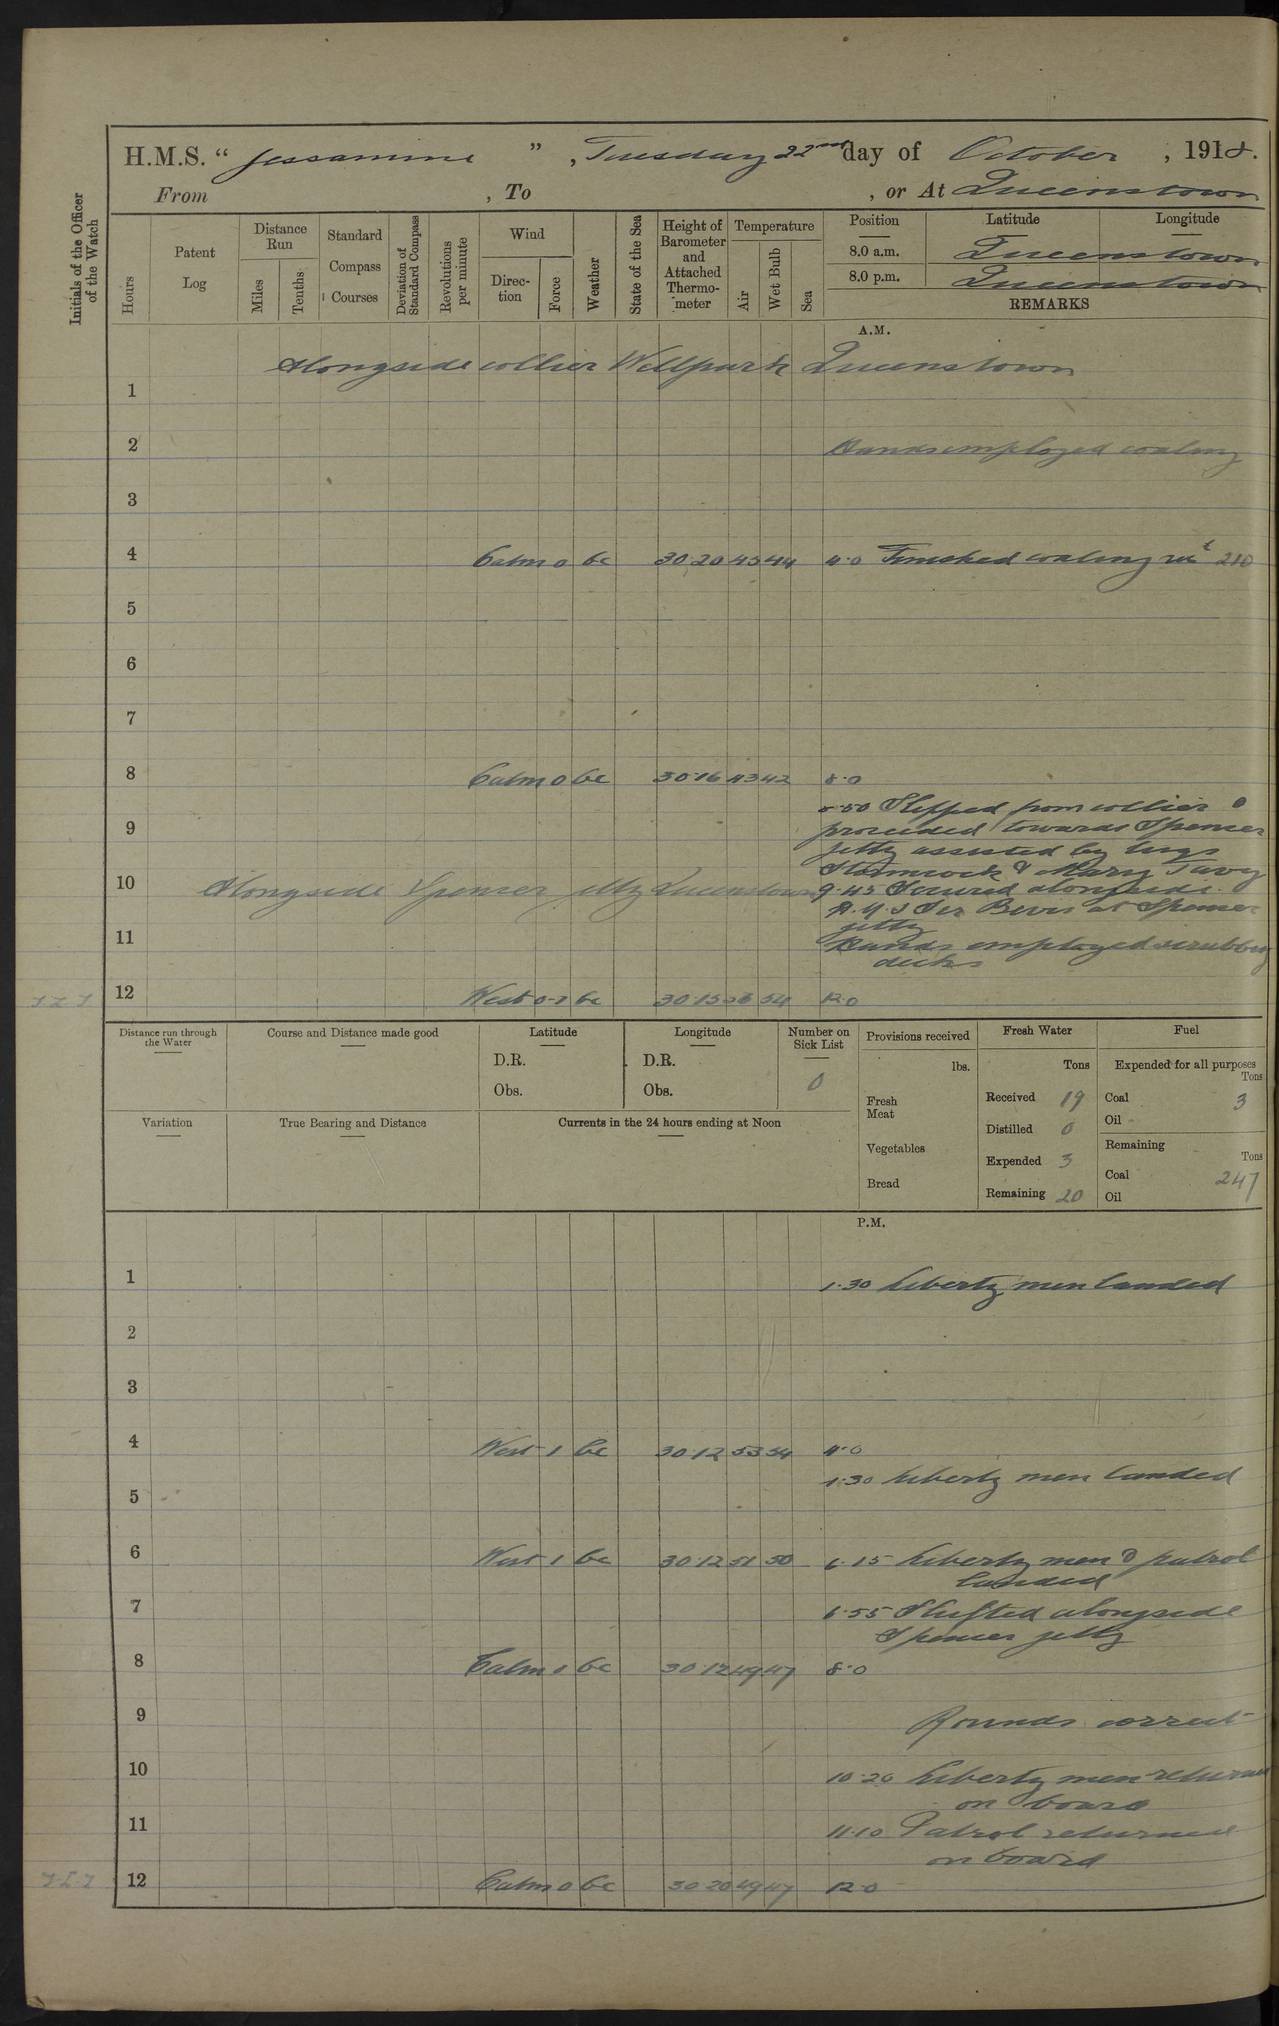 H.M.S. “ Jessamine ” , Tuesday 22nd day of October , 1918.
From , To , or At Queenstown
Initials of the Officer of the Watch
Hours
Patent Log
Distance Run
Miles
Tenths
Standard Compass Courses
Deviation of Standard Compass
Revolutions per minute
Wind
Direction
Force
Weather
State of the Sea
Height of Barometer and Attached Thermometer
Temperature
Air
Wet Bulb
Sea
Position Latitude Longitude
8.0 a.m. Queenstown
8.0 p.m. Queenstown
REMARKS
A.M.
Alongside collier Wellpark Queenstown
1
2 Hands employed coaling
3
4 Calm 0 bc 30.20 45 44 4.0 Finished coaling 210
5
6
7
8 Calm 0 bc 30.16 43 42 8.0
8.50 Slipped from collier &
9 proceeded towards Spencer
jetty assisted by tugs
Shamrock & Mary Tavy
10 Alongside Spencer jetty Queenstown 9.45 Secured alongside
H.M.S Sir Bevis at Spencer
jetty
11 Hands employed scrubbing
decks
12 West 0-1 bc 30.15 56 54 12.0
Distance run through the Water
Course and Distance made good
Latitude
D.R.
Obs.
Longitude
D.R.
Obs.
Number on Sick List
0
Provisions received
lbs.
Fresh Meat
Vegetables
Bread
Fresh Water
Tons
Received 19
Distilled 0
Expended 3
Remaining 20
Fuel
Expended for all purposes
Tons
Coal 3
Oil
Remaining
Tons
Coal 247
Oil
Variation
True Bearing and Distance
Currents in the 24 hours ending at Noon
P.M.
1 1.30 Liberty men landed
2
3
4 West 1 bc 30.12 53 54 4.0
4.30 Liberty men landed
5
6 West 1 bc 30.12 51 50 6.15 Liberty men & patrol
landed
7 6.55 Shifted alongside
Spencer jetty
8 Calm 0 bc 30.12 49 47 8.0
9 Rounds correct
10 10.20 Liberty men returned
on board
11 11.10 Patrol returned
on board
12 Calm 0 bc 30.20 49 47 12.0